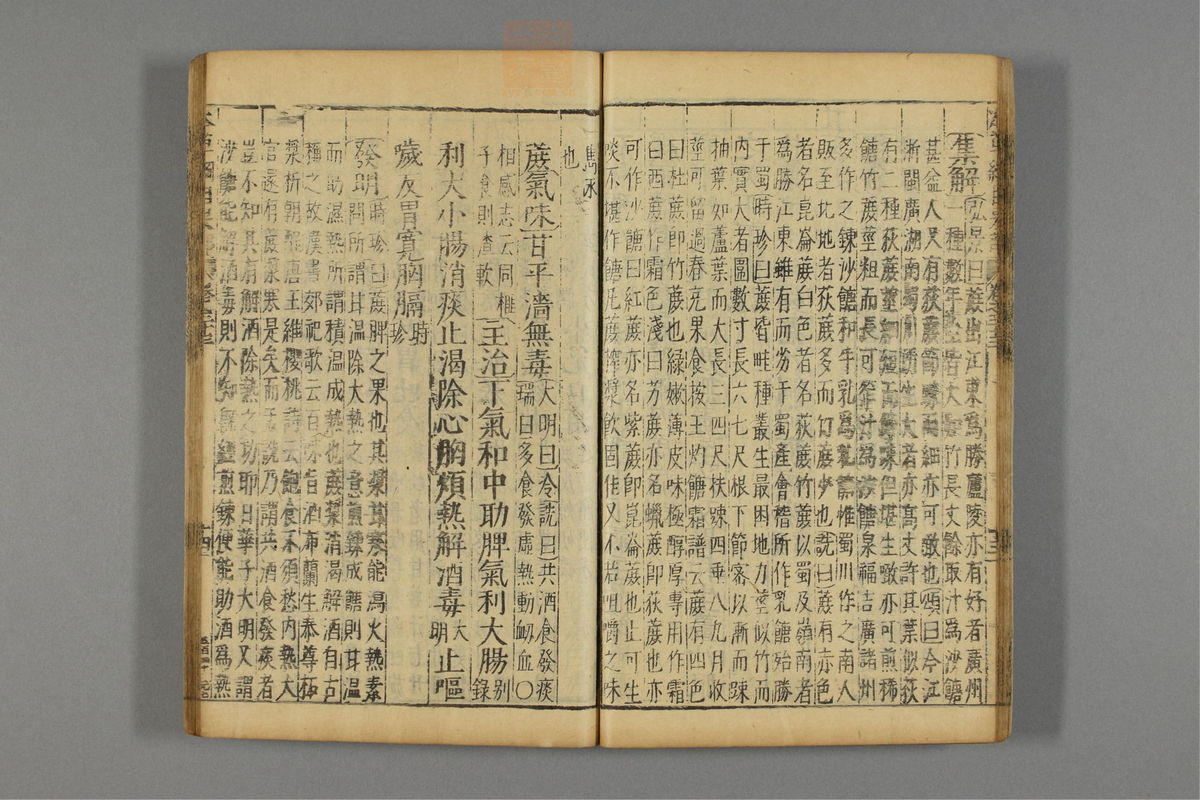 集解弘景曰蔗出江東爲勝廬陵亦有好者廣州
一種數年生皆大如竹長丈餘取汁爲沙餹
甚益人又有荻蔗節疎而細亦可噉也頌曰今江
浙閩廣湖南蜀川所生大者亦高丈許其葉似荻
有二種荻蔗莖細短而節疎但堪生噉亦可煎稀
餹竹蔗莖粗而長可笮汁爲沙餹泉福吉廣諸州
多作之鍊沙餹和牛乳爲乳餹惟蜀川作之南人
販至北地者荻蔗多而竹蔗少也詵曰蔗有赤色
者名崑崙蔗白色者名荻蔗竹蔗以蜀及嶺南者
爲勝江東雖有而劣于蜀產會稽所作乳餹殆勝
于蜀時珍曰蔗皆畦種叢生最困地力莖似竹而
內實大者圍數寸長六七尺根下節密以漸而疎
抽葉如蘆葉而大長三四尺扶疎四垂八九月收
莖可留過春充果食按王灼餹霜譜云蔗有四色
曰杜蔗卽竹蔗也綠嫩薄皮味極醇厚專用作霜
曰西蔗作霜色淺曰芳蔗亦名蠟蔗卽荻蔗也亦
可作沙餹曰紅蔗亦名紫蔗卽崑崙蔗也止可生
啖不堪作餹凡蔗榨漿飲固佳又不若咀嚼之味
雋永
也
蔗氣味甘平濇無毒大明曰冷詵曰共酒食發痰
瑞曰多食發虛熱動衂血○
相感志云同榧
子食則渣軟主治下氣和中助脾氣利大腸別錄
利大小腸消痰止渴除心胸煩熱解酒毒大明止嘔
噦反胃寬胸膈時珍
發明時珍曰蔗脾之果也其漿甘寒能瀉火熱素
問所謂甘溫除大熱之意煎鍊成餹則甘溫
而助濕熱所謂積溫成熱也蔗漿消渴解酒自古
稱之故漢書郊祀歌云百味旨酒布蘭生泰尊柘
漿析朝酲唐王維櫻桃詩云飽食不須愁內熱大
官還有蔗漿寒是矣而孟詵乃謂共酒食發痰者
豈不知其有解酒除熱之功耶日華子大明又謂
沙餹能解酒毒則不知旣經煎鍊便能助酒爲熱